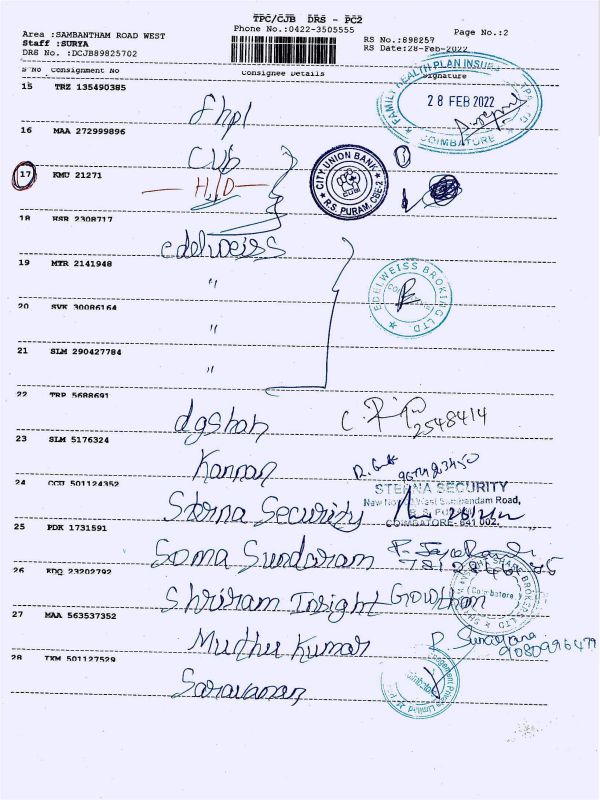 TPC/CJB DRS - PC2
Phone No.:0422-3505555
Page No.:2
Area :SAMBANTHAM ROAD WEST
Staff :SURYA
DRS No. :DCJB89825702
RS No.:898257
RS Date:28-Feb-2022
S No Consignment No Consignee Details Signature
15 TRZ 135490385
fhpl
FAMILY HEALTH PLAN INSU
28 FEB 2022
COIMBATORE
16 MAA 272999896
CUB
17 KMU 21271
H/D
CITY UNION BANK
R.S. PURAM, CBE-2
18 HSR 2308717
edelweiss
19 MTR 2141948
"
EDELWEISS BROKING LTD.
20 SVK 30086164
"
21 SLM 290427784
"
22 TRP 5688691
dgshan
2548414
23 SLM 5176324
Kannan
24 CCU 501124352
Sterna Security
STERNA SECURITY
West Sambandam Road,
COIMBATORE- 641 002.
25 PDK 1731591
Soma Sundaram
26 KDQ 23202792
Shriram Insight Gowtham
SHARE BROKERS LTD
Coimbatore
27 MAA 563537352
Muthu Kumar
9080996479
28 TKM 501127529
Saravanan